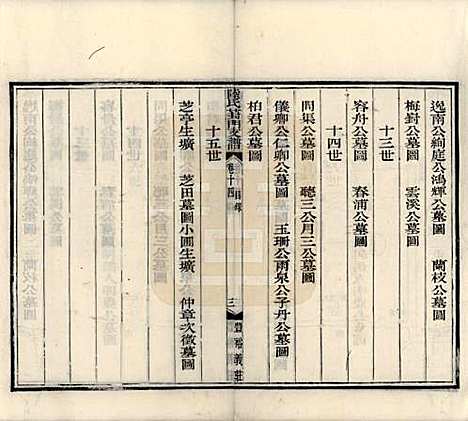 逸南公絢庭公鴻輝公墓圖　蘭枝公墓圖
梅封公墓圖　雲溪公墓圖
十三世
容舟公墓圖　春浦公墓圖
十四世
問渠公墓圖　聽三公月三公墓圖
儀卿公仁卿公墓圖　玉珊公雨泉公子丹公墓圖
柏君公墓圖
陸氏葑門支譜　卷十四　目錄　三　豐裕義莊
十五世
芝亭生壙　芝田墓圖小圃生壙　仲章次徵墓圖